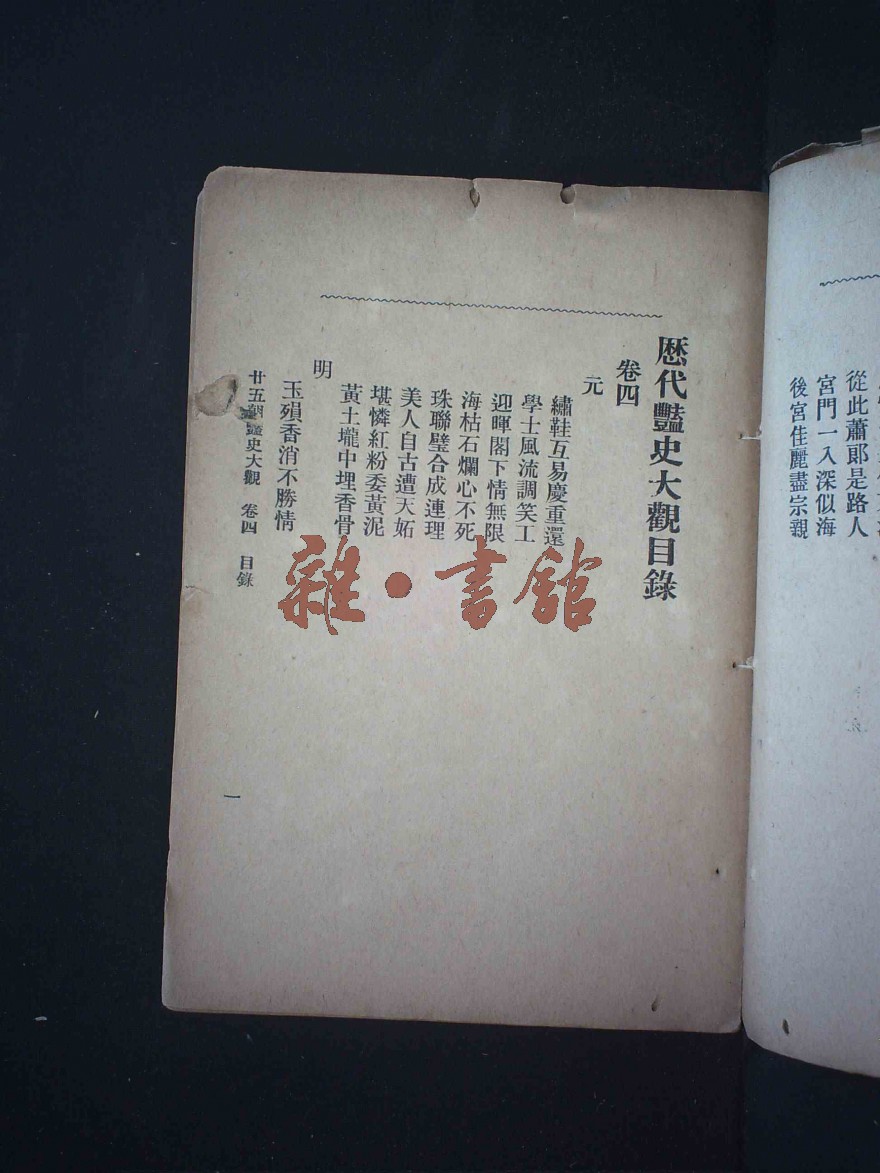 從此蕭郎是路人
宮門一入深似海
後宮佳麗盡宗親
歷代豔史大觀目錄
卷四
元
繡鞋互易慶重還
學士風流調笑工
迎暉閣下情無限
海枯石爛心不死
珠聯璧合成連理
美人自古遭天妬
堪憐紅粉委黃泥
黃土壠中埋香骨
明
玉殞香消不勝情
廿五朝豔史大觀 卷四 目錄
一
雜·書館